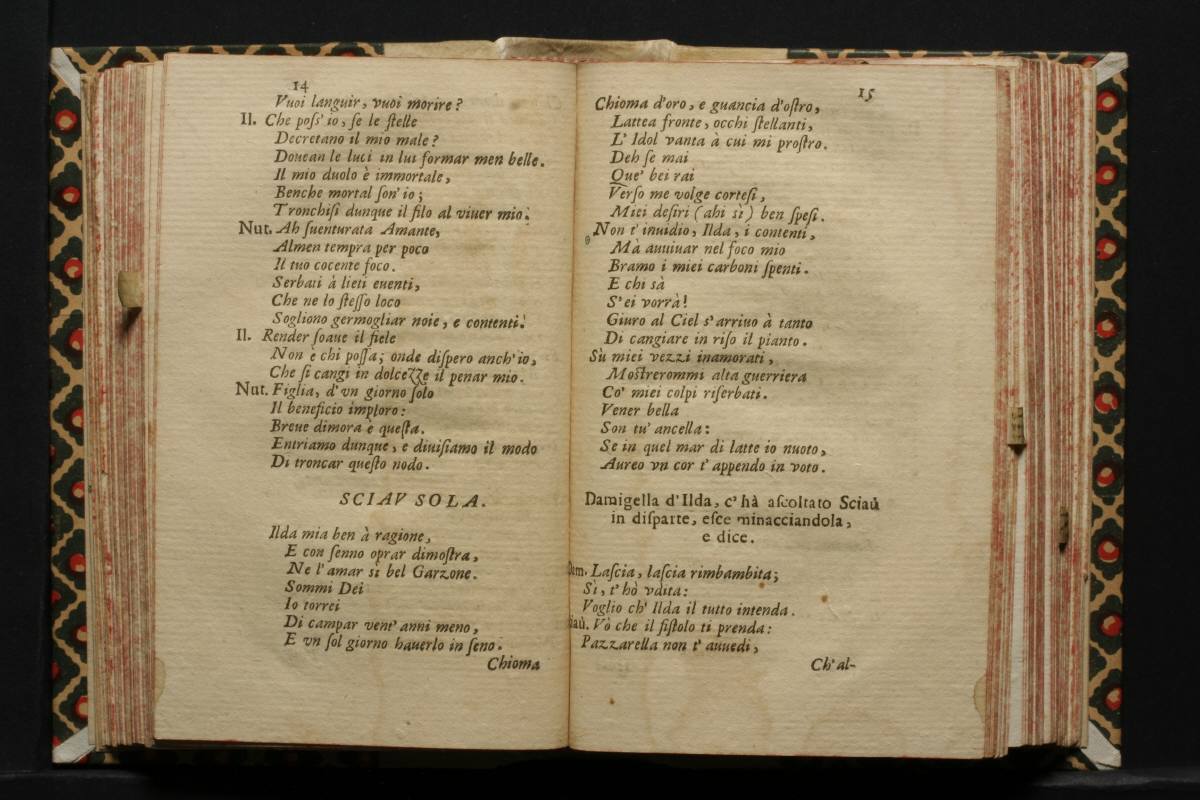 14
Vuoi languir, vuoi morire?
Il. Che poſs' io, ſe le ſtelle
Decretano il mio male?
Douean le luci in lui formar men belle.
Il mio duolo è immortale,
Benche mortal ſon' io;
Tronchiſi dunque il filo al viuer mio.
Nut. Ah ſuenturata Amante,
Almen tempra per poco
Il tuo cocente foco.
Serbati à lieti euenti,
Che ne lo ſteſſo loco
Sogliono germogliar noie, e contenti.
Il. Render ſoaue il fiele
Non è chi poſſa; onde diſpero anch' io,
Che ſi cangi in dolcezze il penar mio.
Nut. Figlia, d' vn giorno ſolo
Il beneficio imploro:
Breue dimora è queſta.
Entriamo dunque, e diuiſiamo il modo
Di troncar queſto nodo.
SCIAV SOLA.
Ilda mia ben à ragione,
E con ſenno oprar dimoſtra,
Ne l' amar sì bel Garzone.
Sommi Dei
Io torrei
Di campar vent' anni meno,
E vn ſol giorno hauerlo in ſeno.
Chioma
15
Chioma d'oro, e guancia d'oſtro,
Lattea fronte, occhi ſtellanti,
L' Idol vanta à cui mi proſtro.
Deh ſe mai
Que' bei rai
Verſo me volge corteſi,
Miei deſiri (ahi sì) ben ſpeſi.
Non t' inuidio, Ilda, i contenti,
Mà auuiuar nel foco mio
Bramo i miei carboni ſpenti.
E chi sà
S' ei vorrà!
Giuro al Ciel s' arriuo à tanto
Di cangiare in riſo il pianto.
Sù miei vezzi inamorati,
Moſtrerommi alta guerriera
Co' miei colpi riſerbati.
Vener bella
Son tu' ancella:
Se in quel mar di latte io nuoto,
Aureo vn cor t' appendo in voto.
Damigella d'Ilda, c' hà aſcoltato Sciaù
in diſparte, eſce minacciandola,
e dice.
Dam. Laſcia, laſcia rimbambita;
Sì, t' hò vdita:
Voglio ch' Ilda il tutto intenda.
Sciaù. Vò che il fiſtolo ti prenda:
Pazzarella non t' auuedi,
Ch' al-